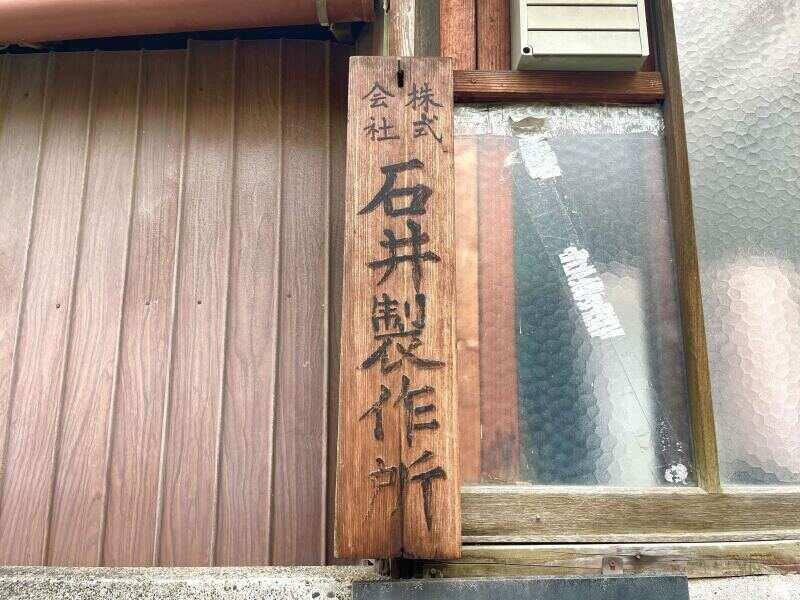 株式
会社
石井製作所